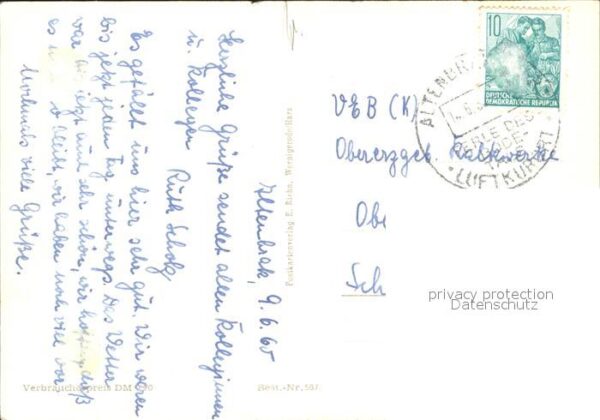 Altenbrak, 9.6.60
Herzliche Grüße sendet allen Kolleginnen
u. Kollegen Ruth Scholz
Es gefällt uns hier sehr gut. Wir waren
bis jetzt jeden Tag unterwegs. Das Wetter
war bis jetzt auch sehr schön, wir hoffen, daß
es so bleibt, wir haben noch viel vor.
Nochmals viele
Grüße.
Verbraucherpreis DM
Best.-Nr.
Postkartenverlag E. Riehn, Wernigerode/Harz
10
DEUTSCHE
DEMOKRATISCHE REPUBLIK
PERLE DES
LUFTKURORT
VEB (K)
Obererzgeb. Kalkwerke
Obe
Sch
privacy protection
Datenschutz